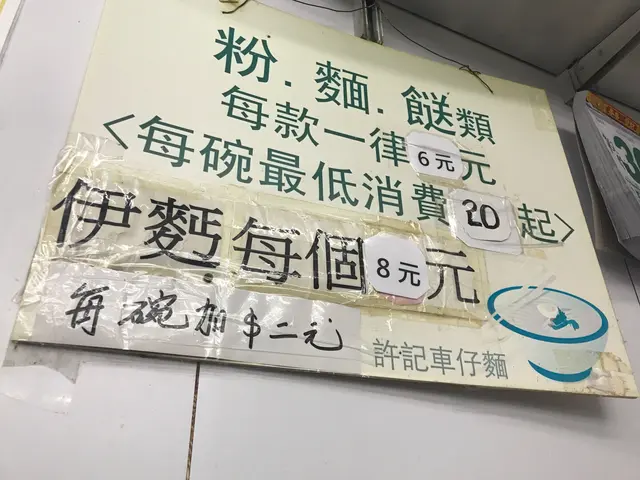 粉.麵.餸類
每款一律6元元
<每碗最低消費20起>
伊麫每個8元元
每碗加$二元
許記車仔麵